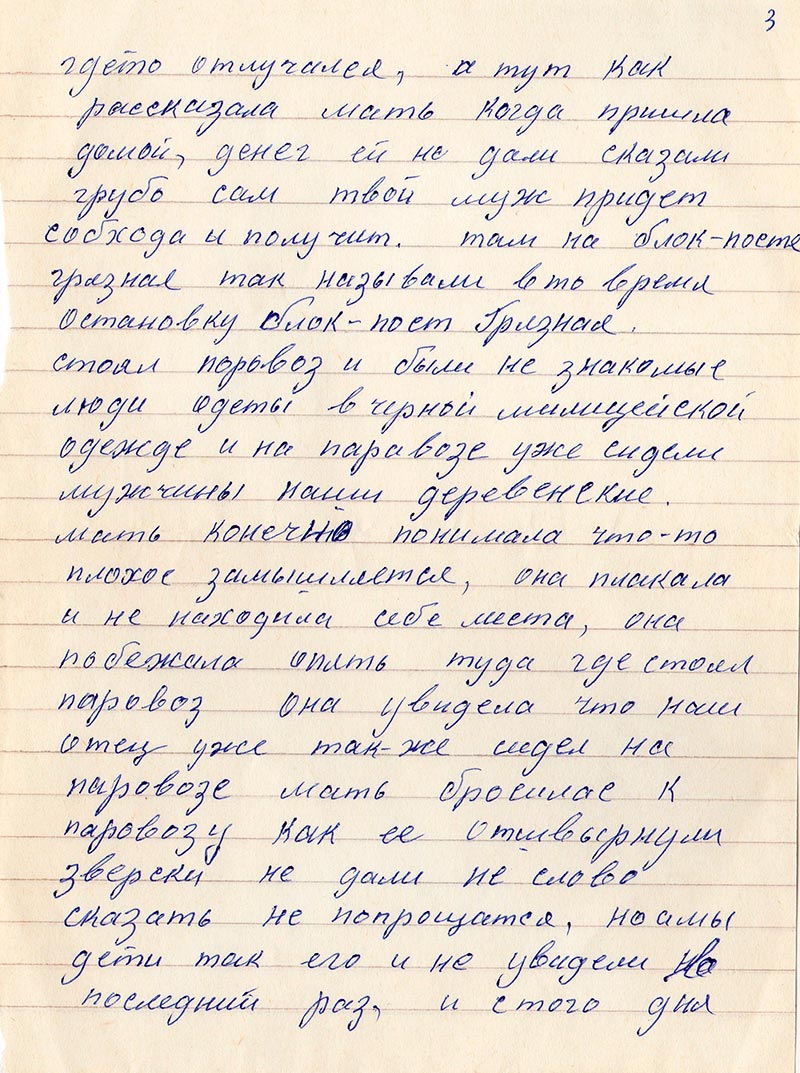 3
гдето отлучался, а тут как
рассказала мать когда пришла
домой, денег ей не дали сказали
грубо сам твой муж придет
собхода и получит. там на блок-посте
грязная так называли в то время
остановку блок-пост Грязная.
стоял поровоз и были не знакомые
люди одеты в черной милицейской
одежде и на паравозе уже сидели
мужчины наши деревенские.
мать конечно понимала что-то
плохое замышляется, она плакала
и не находила себе места, она
побежала опять туда где стоял
паровоз она увидела что наш
отец уже так-же сидел на
паровозе мать бросилас к
паровозу как ее отшвырнули
зверски не дали не слово
сказать не попрощатся, но а мы
дети так его и не увидели на
последний раз, и с того дня